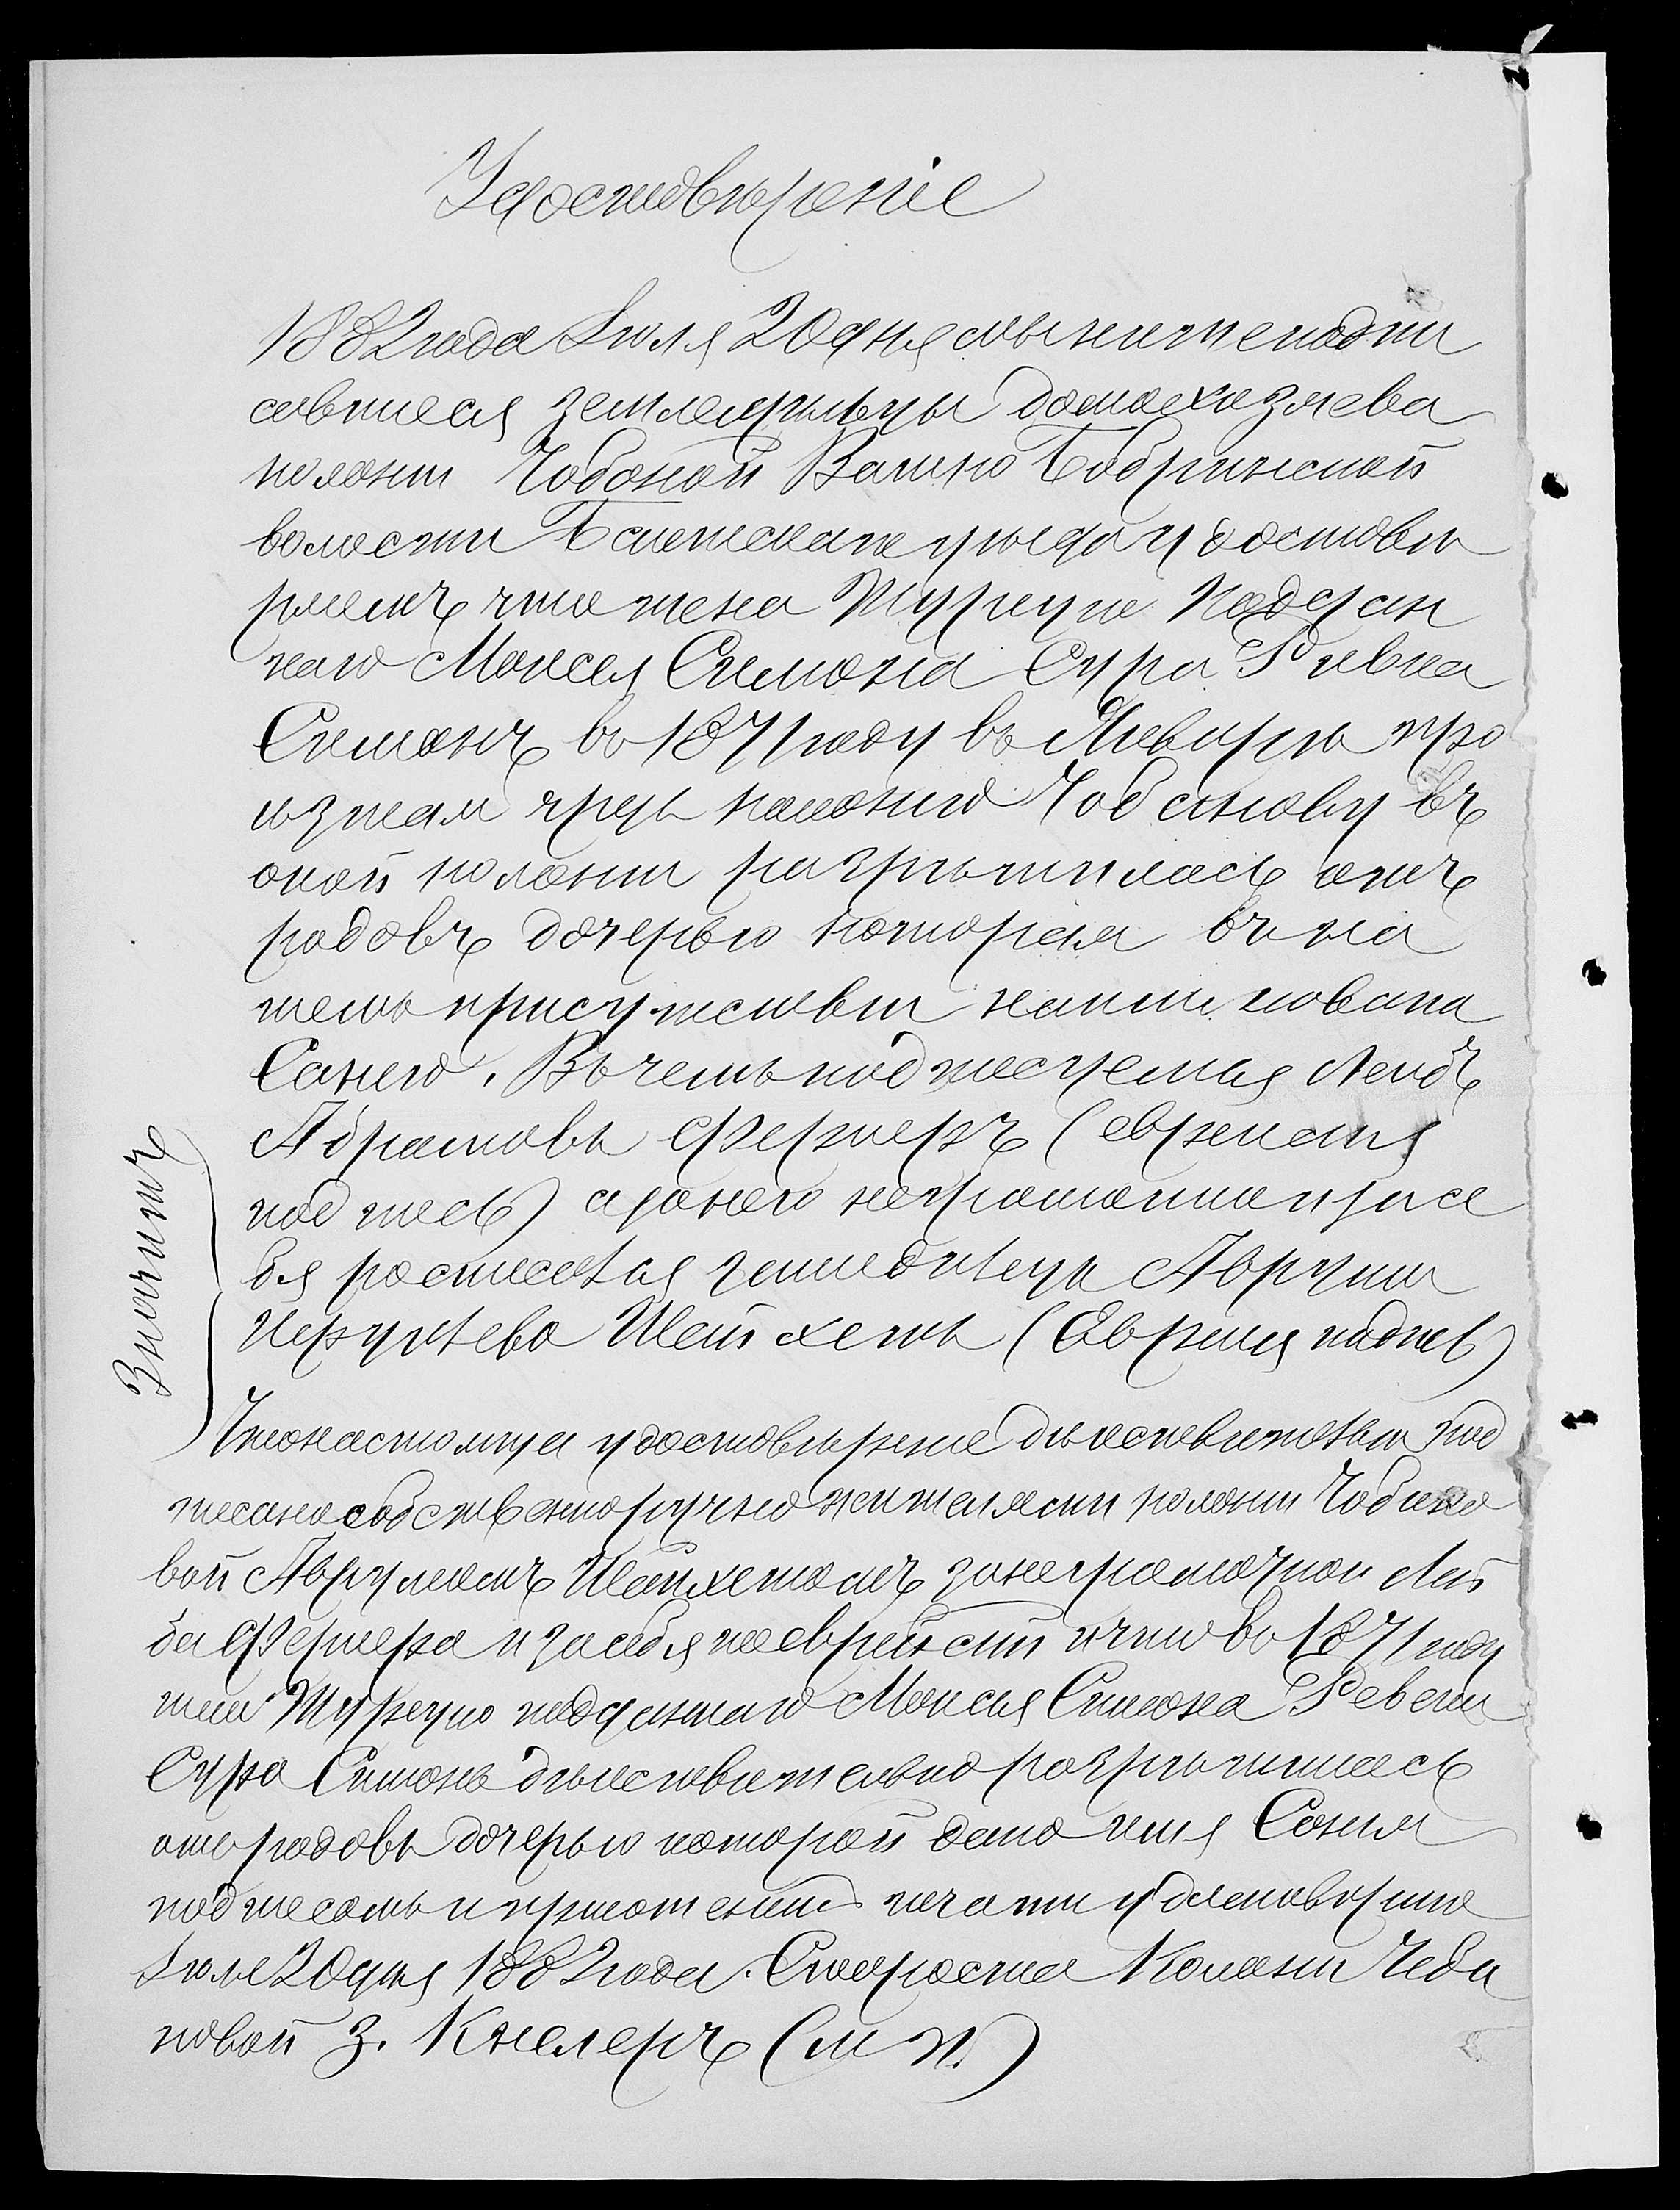 Удостовѣреніе
1882 года Іюля 20 дня мы нижеподпи
савшеся земледѣльцы домохозяева
колони Чобоной Валяно Бобринской
волости уѣзда удостовѣ
ряемъ что жена Турецко Поддан
наго Моисея Симона Сура Ривка
Симонъ во 1871 году въ Январѣ про
изжая чрезъ колонию Чобанову въ
оной колони разрѣшилась отъ
родовъ дочерью которая въ на
шемъ присутствіи наименована
Сонею. Въ чемъ подписуемся Лейбъ
Абрамовъ Фермеръ (еврейская
подпись) а за него неграмотнаго и за се
бя росписался земледѣлецъ Аврумъ
Шейхетъ (Еврейская подпись)
Что настоящее удостовѣреніе дѣйствительно под
писано собственноручно жителями колони Чобано
вой Аврумомъ Шейхетомъ за неграмотнаго Лей
ба Фермера и за себя по еврейски и что во 1871 году
жена Турецко подданнаго Моисея Симона Ревека
Сура Симонъ дѣйствительно разрѣшилась
отъ родовъ дочерью которой дано имя Соня
подписомъ и приложеніемъ печати удостовѣряю
Іюля 20 дня 1882 года. Староста Колони Чеба
новой З. Кнелеръ (м п.)
Значитъ